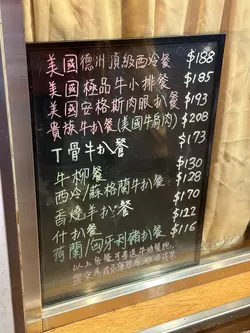 美國德洲頂級西冷餐 $188
美國極品牛小排餐 $185
美國安格斯肉眼扒餐 $193
貴族牛扒餐(美國牛肩肉) $208
T骨牛扒餐 $173
牛柳餐 $130
西冷/蘇格蘭牛扒餐 $128
香燒羊扒餐 $170
什扒餐 $122
荷蘭/匈牙利豬扒餐 $116
以上套餐可享送牛油餐包